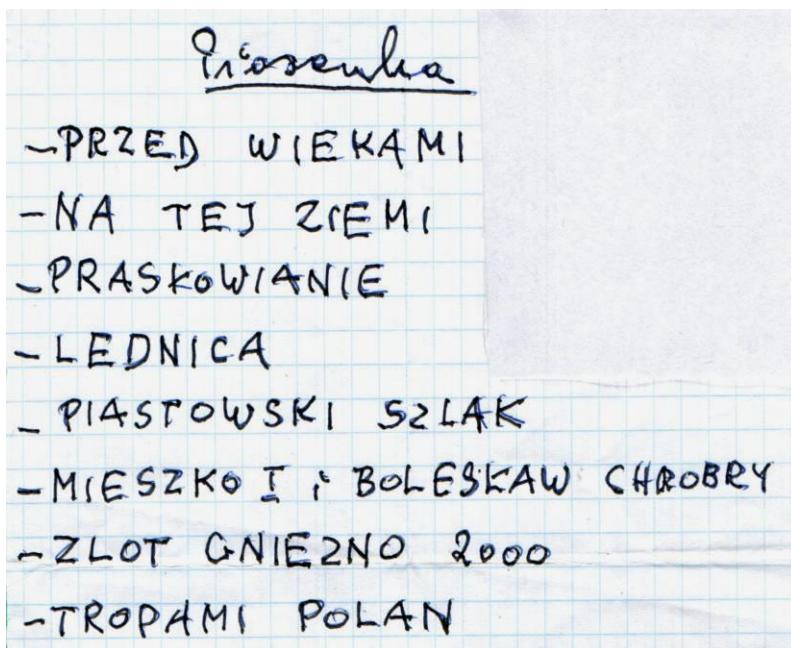 Piosenka
-PRZED WIEKAMI
-NA TEJ ZIEMI
-PRASKOWIANIE
-LEDNICA
-PIASTOWSKI SZLAK
-MIESZKO I i BOLESŁAW CHROBRY
-ZLOT GNIEZNO 2000
-TROPAMI POLAN